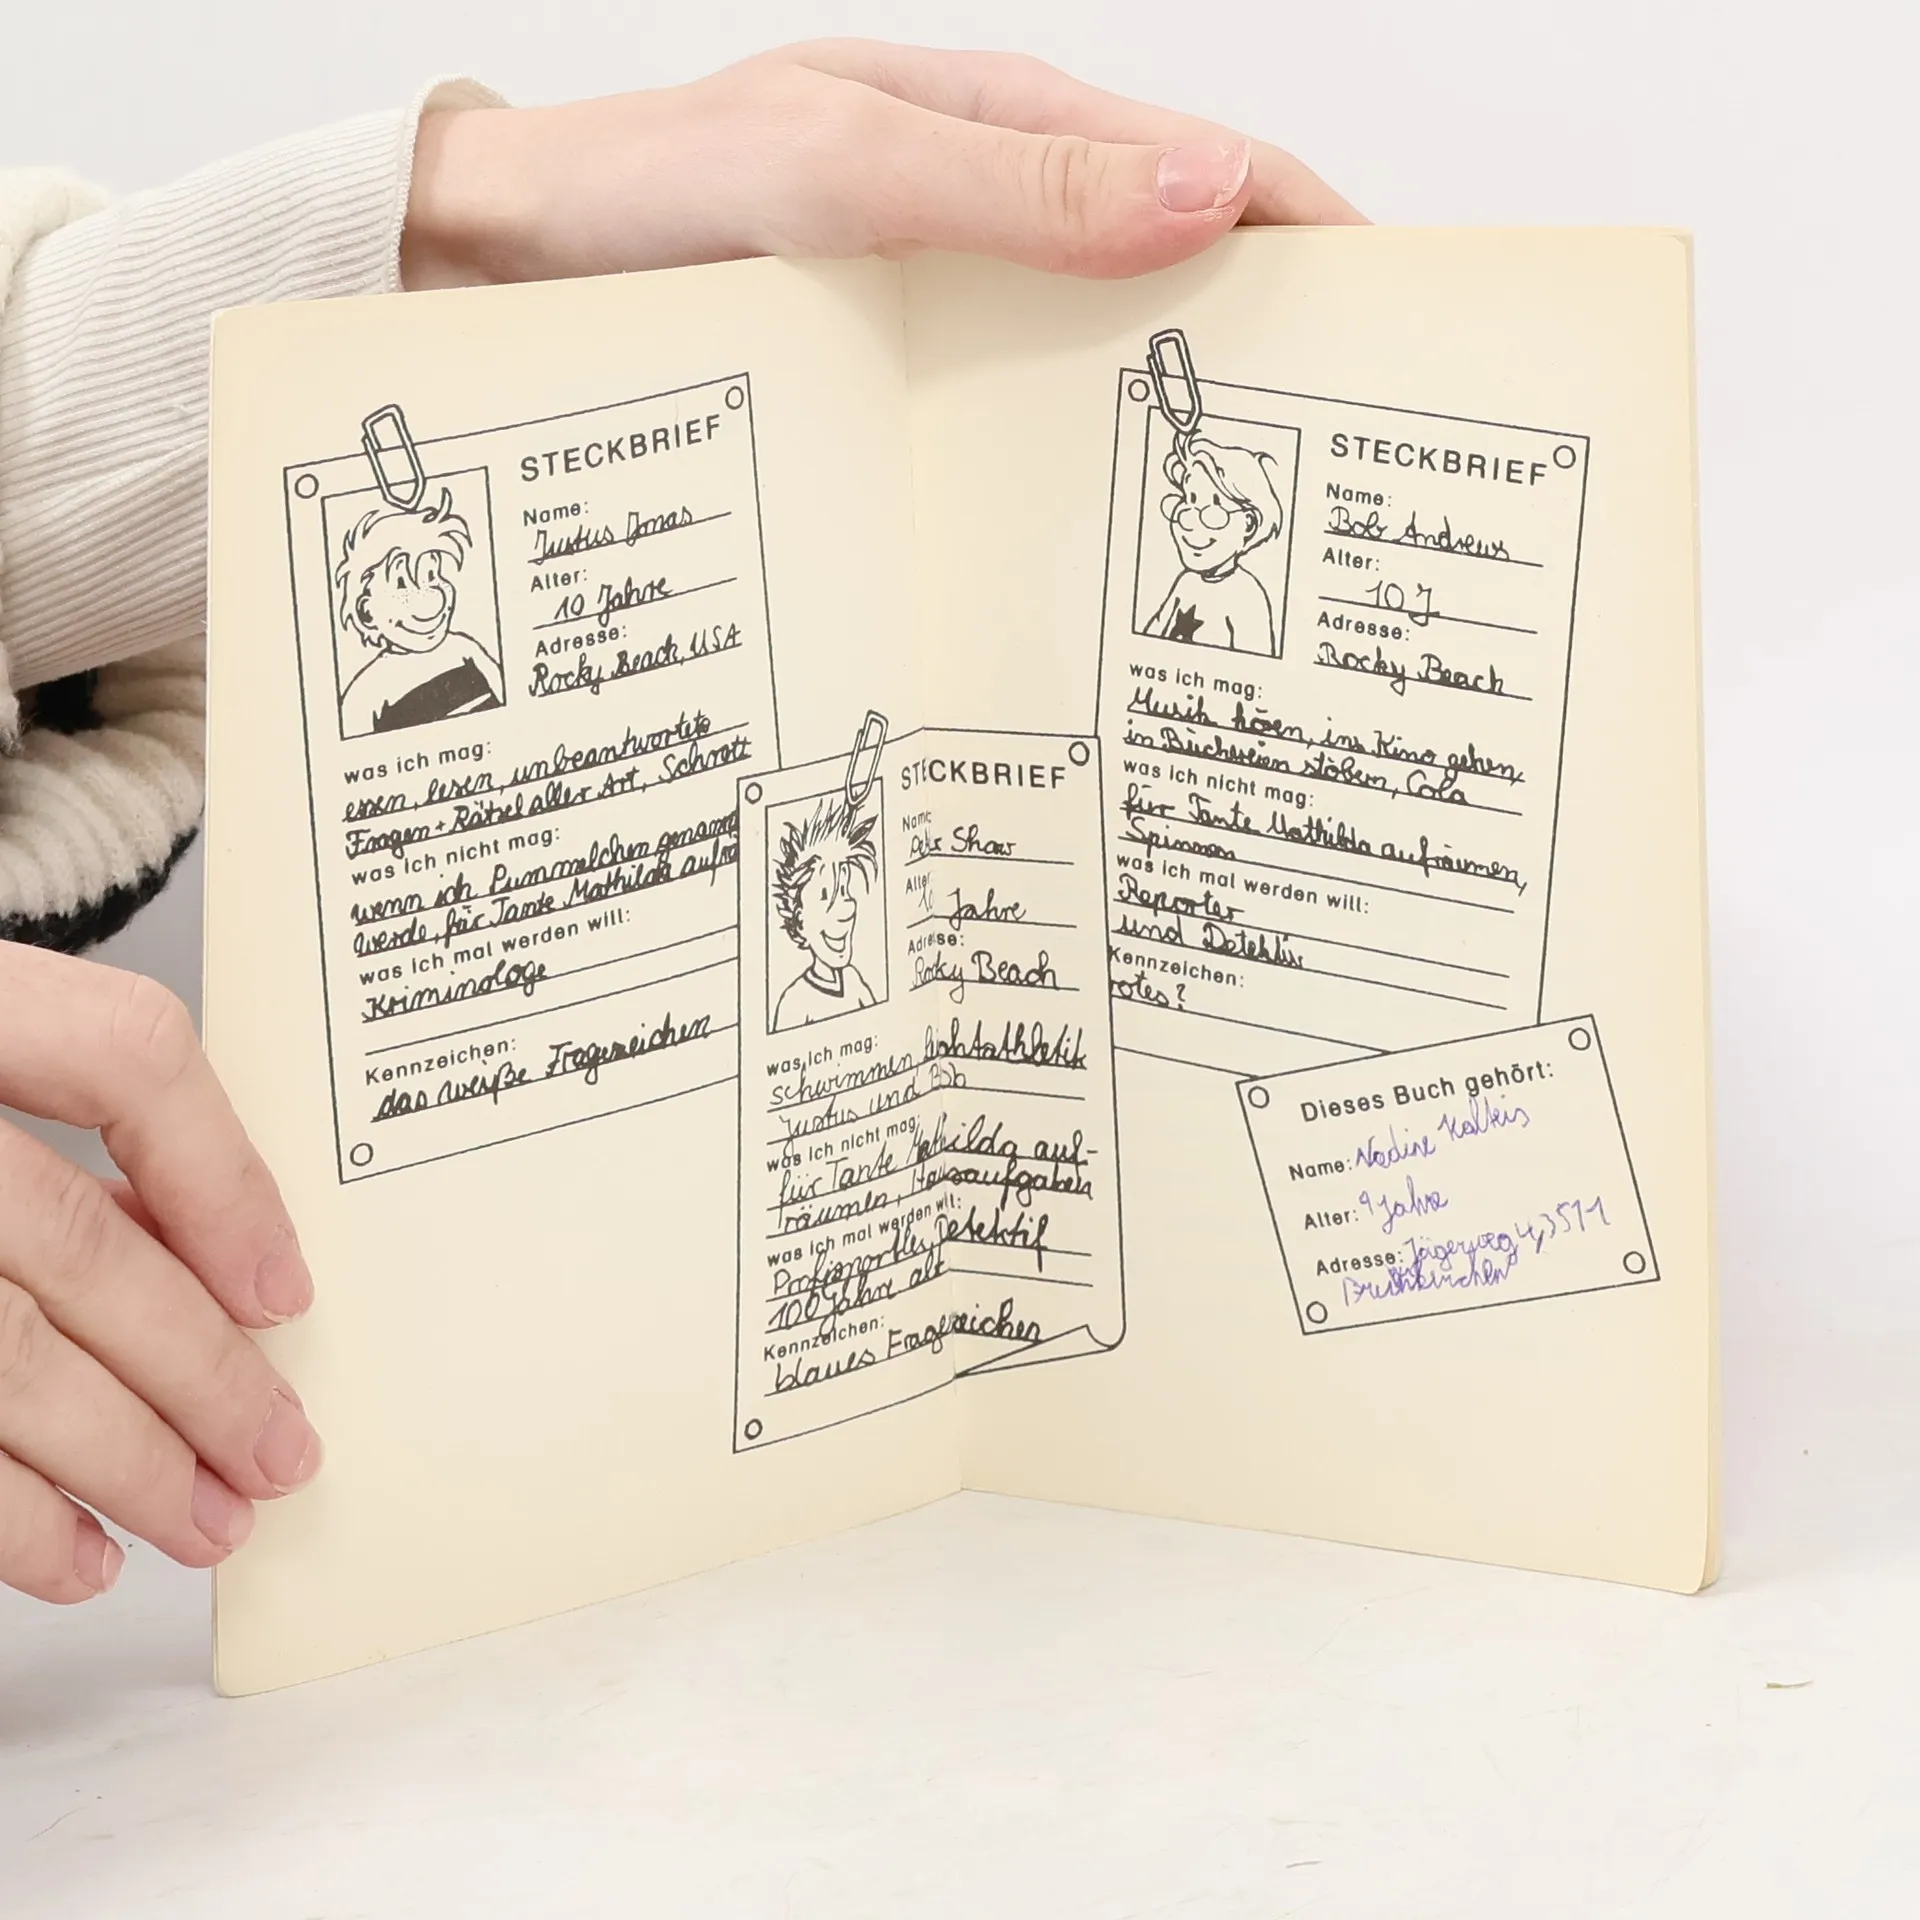 STECKBRIEF
Name:
Justus Jonas
Alter:
10 Jahre
Adresse:
Rocky Beach, USA
was ich mag:
essen, lesen, unbeantwortete
Fragen + Rätsel aller Art, Schrott
was ich nicht mag:
wenn ich Pummelchen genannt
werde, für Tante Mathilda aufrä
was ich mal werden will:
Kriminologe
Kennzeichen:
das weiße Fragezeichen
STECKBRIEF
Name:
Peter Shaw
Alter:
10 Jahre
Adresse:
Rocky Beach
was ich mag:
schwimmen, Leichtathletik
Justus und Bob
was ich nicht mag:
für Tante Mathilda auf-
räumen, Hausaufgaben
was ich mal werden will:
Profisportler, Detektif
100 Jahre alt
Kennzeichen:
blaues Fragezeichen
STECKBRIEF
Name:
Bob Andrews
Alter:
10 J
Adresse:
Rocky Beach
was ich mag:
Musik hören, ins Kino gehen,
in Büchereien stöbern, Cola
was ich nicht mag:
für Tante Mathilda aufräumen,
Spinnen
was ich mal werden will:
Reporter
und Detektiv
Kennzeichen:
rotes ?
Dieses Buch gehört:
Name: Nadine
Alter: 9 Jahre
Adresse: Jägerweg 4, 3511